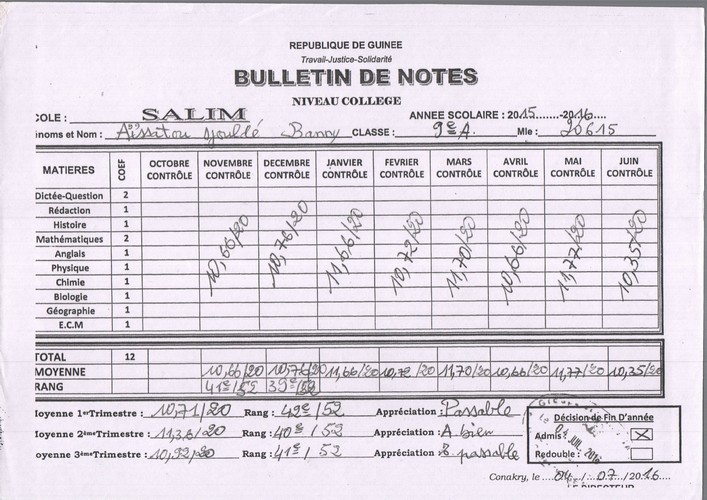 REPUBLIQUE DE GUINEE
Travail-Justice-Solidarité
BULLETIN DE NOTES
NIVEAU COLLEGE
COLE : SALIM ANNEE SCOLAIRE : 2015.......-2016....
énoms et Nom : Aïssatou Barry CLASSE : 9e A. Mle : 20615
MATIERES COEF OCTOBRE CONTRÔLE NOVEMBRE CONTRÔLE DECEMBRE CONTRÔLE JANVIER CONTRÔLE FEVRIER CONTRÔLE MARS CONTRÔLE AVRIL CONTRÔLE MAI CONTRÔLE JUIN CONTRÔLE
Dictée-Question 2
Rédaction 1
Histoire 1
Mathématiques 2
Anglais 1
Physique 1
Chimie 1
Biologie 1
Géographie 1
E.C.M 1
10,66/20 10,76/20 11,66/20 10,72/20 11,70/20 10,66/20 11,77/20 10,35/20
TOTAL 12
MOYENNE 10,66/20 10,76/20 11,66/20 10,72/20 11,70/20 10,66/20 11,77/20 10,35/20
RANG 41e/52 39e/52
oyenne 1erTrimestre : 10,71/20 Rang : 42e/52 Appréciation : Passable
oyenne 2èmeTrimestre : 11,36/20 Rang : 40e/52 Appréciation : A. bien
oyenne 3èmeTrimestre : 10,92/20 Rang : 41e/52 Appréciation : passable
Décision de Fin D'année
Admis : X
Redouble :
04 JUIL 2016
Conakry, le ....04../...07.../2016....
LE DIRECTEUR